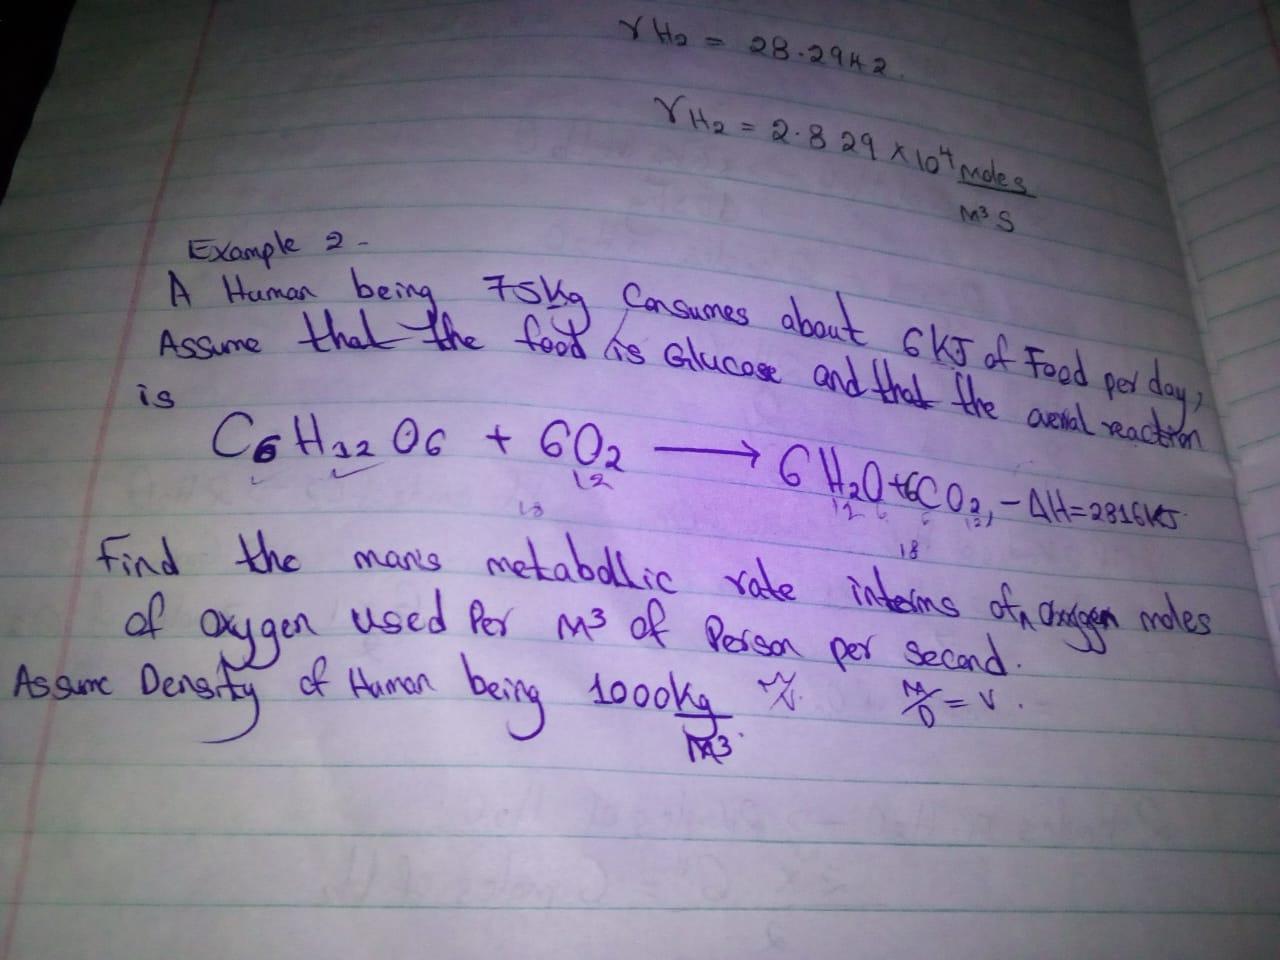 γH2 = 28.2942.
γH2 = 2.829 × 10⁴ moles
M³ S
Example 2 -
A Human being 75Kg Consumes about 6KJ of Food per day,
Assume that the food is Glucose and that the overal reaction
is
C6 H12 O6 + 6O2 ⟶ 6H2O+6CO2, -ΔH=2816KJ
12 12
18 18
Find the man's metabollic rate interms of oxygen moles
of oxygen used Per M³ of Person per second.
Assume Density of Human being 1000Kg M/D = V.
M³